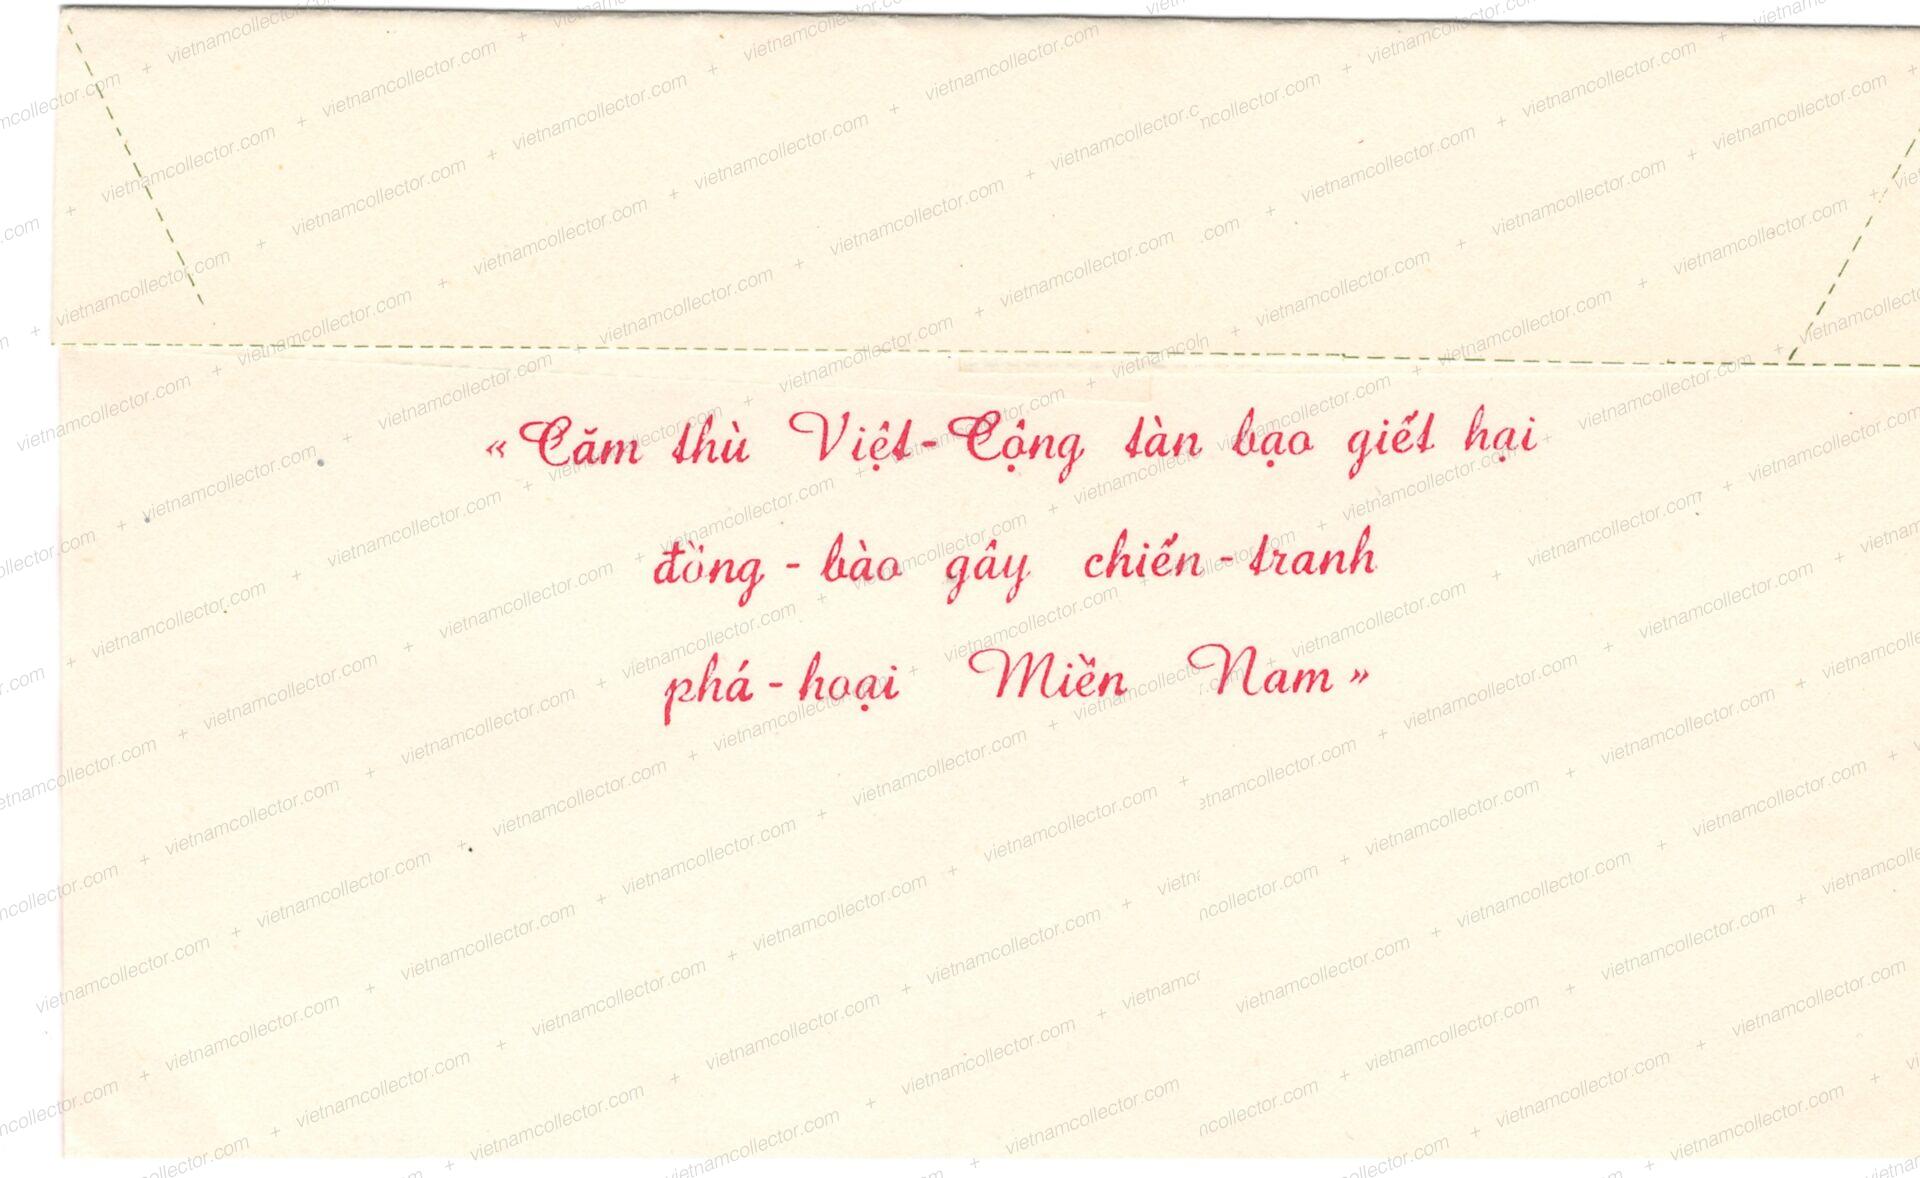 « Căm thù Việt-Cộng tàn bạo giết hại
đồng-bào gây chiến-tranh
phá-hoại Miền Nam »
vietnamcollector.com